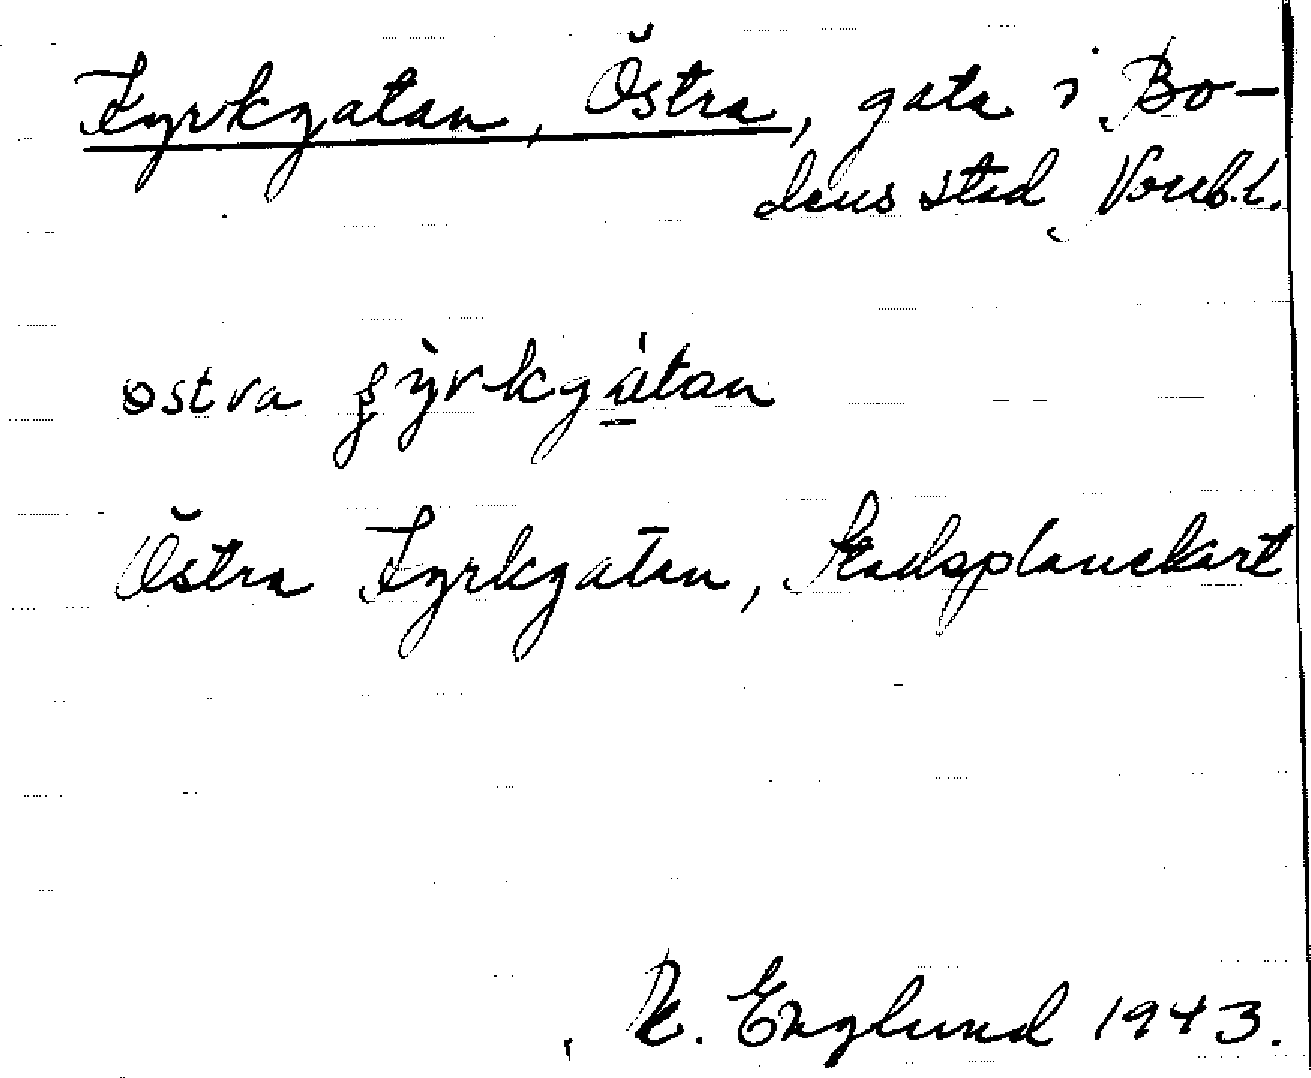 Kyrkgatan, Östra, gata i Bo-
dens stad, Norrb.l.
østra çỳrkgátan
Östra Kyrkgatan, Stadsplanekart
R. Englund 1943.